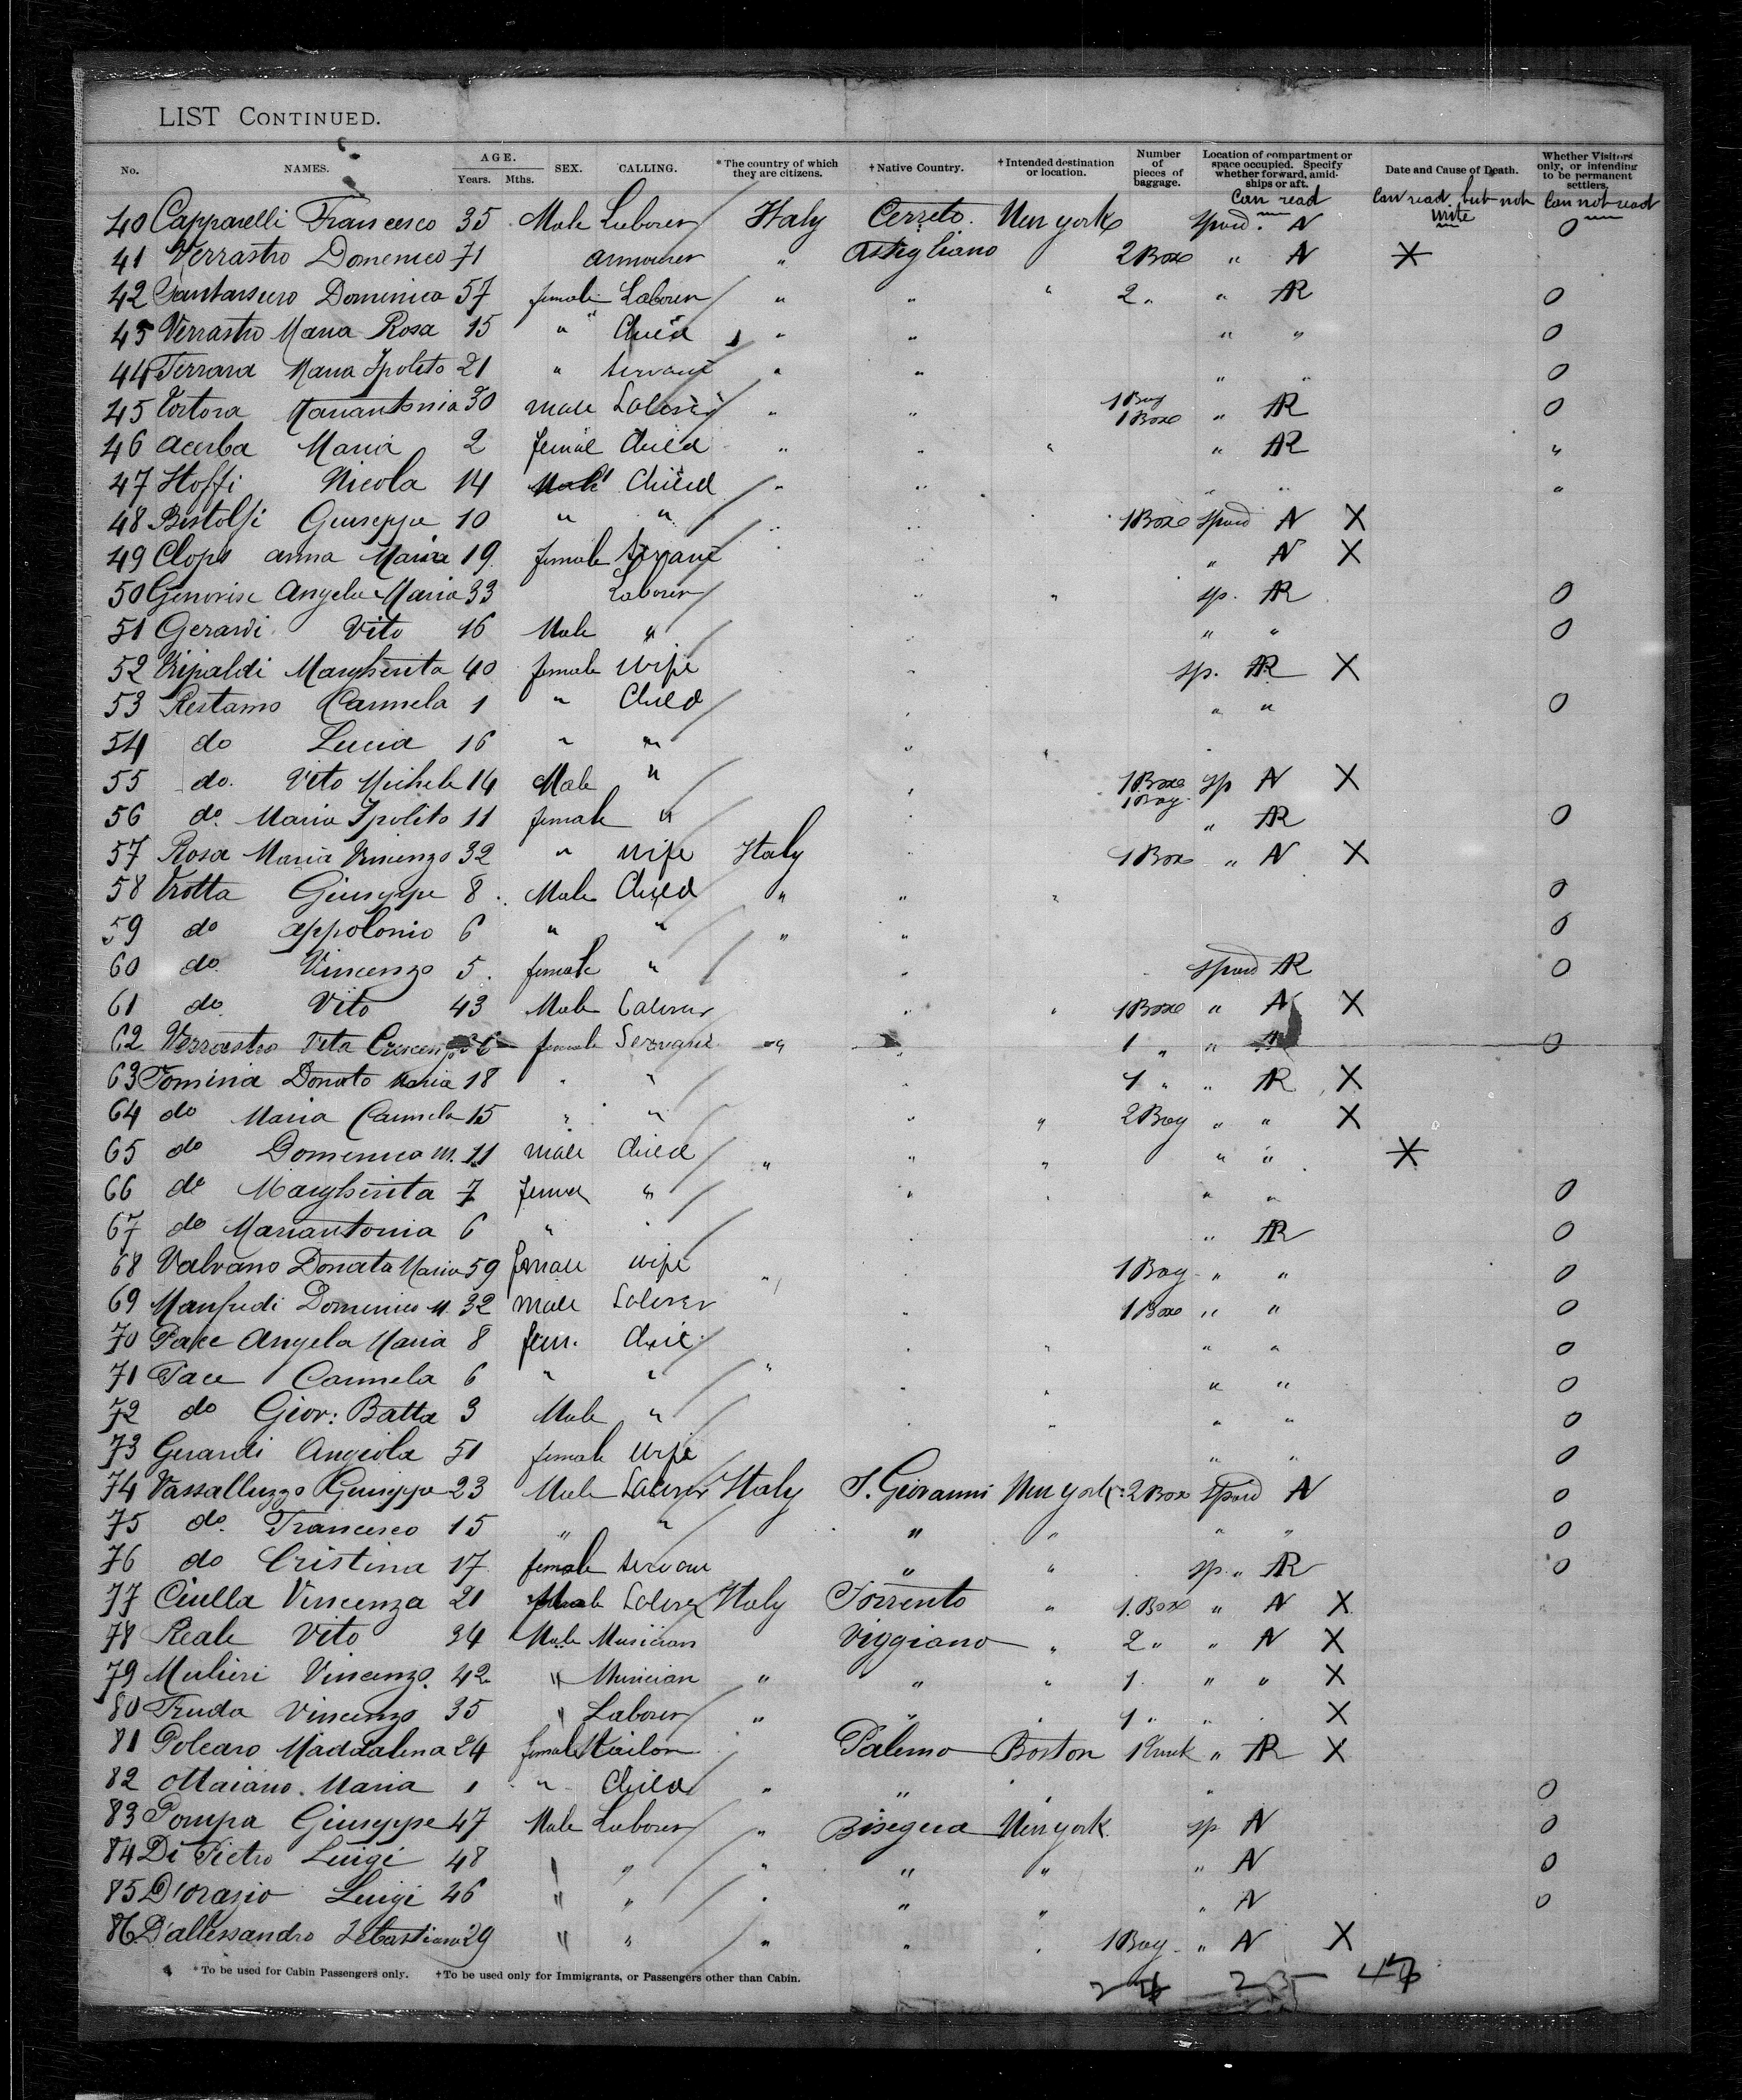 LIST CONTINUED.
No. NAMES. AGE. Years. Mths. SEX. CALLING. *The country of which they are citizens. †Native Country. †Intended destination or location. Number of pieces of baggage. Location of compartment or space occupied. Specify whether forward, amidships or aft. Date and Cause of Death. Whether Visitors only, or intending to be permanent settlers.
Can read Can read but not write Can not read
40 Capparelli Francesco 35 Male Laborer Italy Cerreto New york N 0
41 Verrastro Domenico 71 " 2 Box " N X
42 Domenica 57 female Laborer " " " 2 " " AR 0
43 Verrastro Maria Rosa 15 " Child " " " " 0
44 Ferrara Maria Ipolito 21 " Servant " " " " 0
45 Tortora Mariantonia 30 male Laborer " " 1 Bag 1 Box " AR 0
46 Acerba Maria 2 female Child " " " " AR "
47 Nicola 14 Male Child " " " " "
48 Bistolfi Giuseppe 10 " " " " 1 Box N X
49 Clops anna Maria 19 female Servant " " N X
50 Genovise Angela Maria 33 Laborer " " sp. AR 0
51 Gerardi Vito 16 Male " " " " 0
52 Margherita 40 female wife " sp. AR X
53 Restamo Carmela 1 " Child " " " 0
54 do Lucia 16 " " " "
55 do. Vito Michele 14 Male " " 1 Box 1 Bag sp N X
56 do. Maria Ipolito 11 female " " " AR 0
57 Rosa Maria Vincenzo 32 " wife Italy " 1 Box " N X
58 Trotta Giuseppe 8 Male Child " " " 0
59 do appolonio 6 " " " " 0
60 do. Vincenzo 5 female " " AR 0
61 do. Vito 43 Male Laborer " " 1 Box " N X
62 Verrastro Vita female Servant " " 1 " " 0
63 Tomina Donato Maria 18 " " " 1 " " AR X
64 do Maria Carmela 15 " " " " 2 Bag " " X
65 do Domenico M. 11 male Child " " " " " X
66 do Margherita 7 female " " " " " 0
67 do Mariantonia 6 " " " " AR 0
68 Valvano Donata Maria 59 female wife " " 1 Bag " " 0
69 Manfredi Domenico M. 32 male Laborer " 1 Box " " 0
70 Pace Angela Maria 8 fem. Chil. " " " " 0
71 Pace Carmela 6 " " " " " " " 0
72 do Giov: Batta 3 Male " " " " " 0
73 Gerardi Angiola 51 female wife " " 0
74 Vassalluzzo Giuseppe 23 Male Laborer Italy S. Giovanni New york. 2 Box N 0
75 do. Francesco 15 " " " " " " 0
76 do Cristina 17 female servant " " sp. " AR 0
77 Ciulla Vincenza 21 Laborer Italy Sorrento " 1. Box " N X
78 Reale Vito 34 Male Musician Viggiano " 2 " " N X
79 Mulieri Vincenzo. 42 " Musician " " " 1 " " X
80 Truda Vincenzo 35 " Laborer " " " 1 " " X
81 Polcaro Maddalena 24 female Tailor " Palermo Boston 1 Trunk " AR X
82 Ottaiano. Maria 1 " Child " " " " 0
83 Pompa Giuseppe 47 Male Laborer " Bisegna New york. sp N 0
84 Di Pietro Luigi 48 " " " " " " N 0
85 D'Orazio Luigi 46 " " " " " " N 0
86 D'allessandro Sebastiano 29 " " " " " 1 Bag " N X
*To be used for Cabin Passengers only. †To be used only for Immigrants, or Passengers other than Cabin.